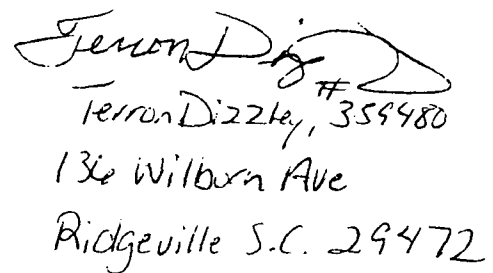 Terron Diz
Terron Dizzley, #359480
136 Wilburn Ave
Ridgeville S.C. 29472